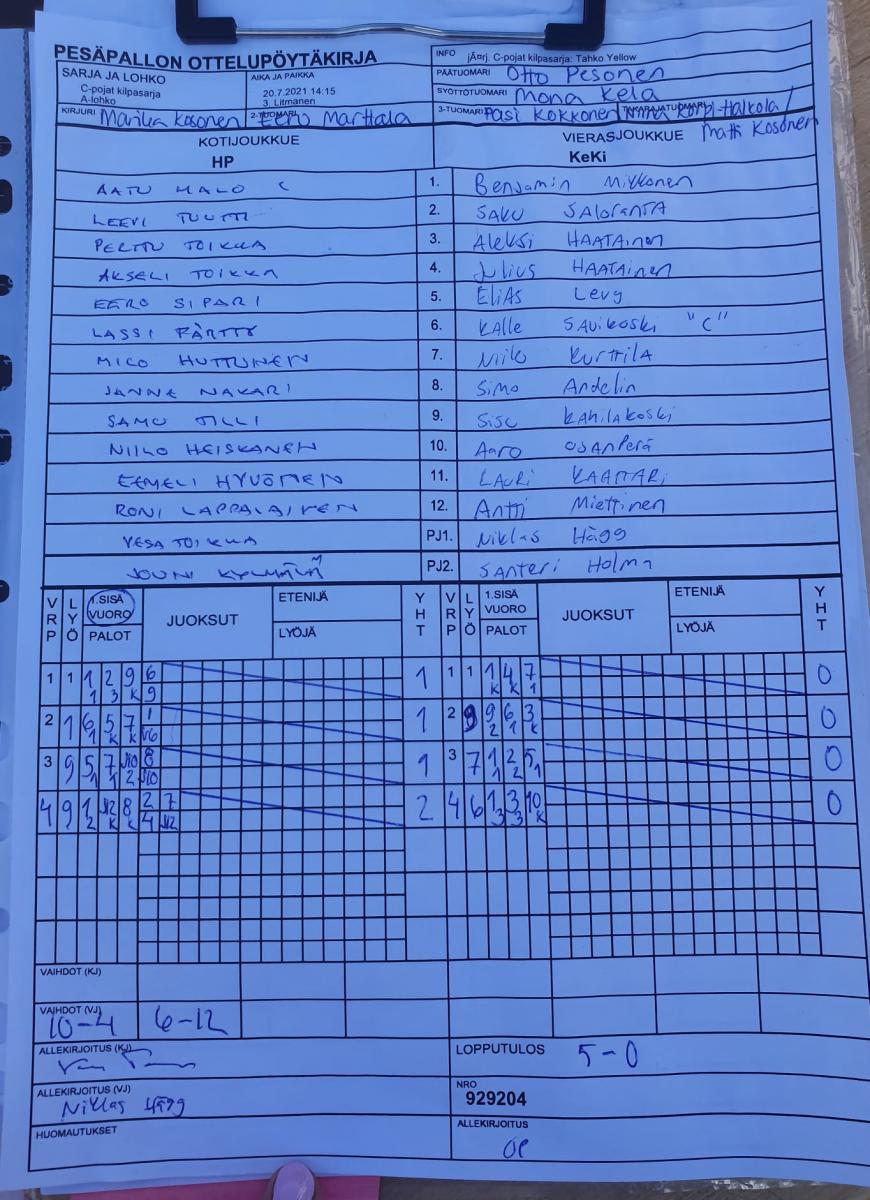 PESÄPALLON OTTELUPÖYTÄKIRJA
INFO jÄ¤rj. C-pojat kilpasarja: Tahko Yellow
SARJA JA LOHKO
C-pojat kilpasarja
A-lohko
AIKA JA PAIKKA
20.7.2021 14:15
3. Litmanen
PÄÄTUOMARI Otto Pesonen
SYÖTTÖTUOMARI Mona Kela
KIRJURI Marika Kosonen 2-TUOMARI Eero Marttala
3-TUOMARI Pasi Kokkonen TAKARAJATUOMARI Korpi-Halkola /
Matti Kosonen
KOTIJOUKKUE VIERASJOUKKUE
HP KeKi
AATU MALO C 1. Benjamin Mikkonen
LEEVI TUUTTI 2. SAKU SALORANTA
PERTTU TOIKKA 3. Aleksi HAATAinen
AKSELI TOIKKA 4. Julius HAATAinen
EERO SIPARI 5. EliAs Levy
LASSI PÄRTTY 6. KAlle SAvikoski "C"
MICO HUTTUNEN 7. Niilo Kurttila
JANNE NAKARI 8. Simo Andelin
SAMU TILLI 9. Sisu KAhilakoski
NIILO HEISKANEN 10. Aaro OSANPerä
EEMELI HYVÖNEN 11. LAuRi
RONI LAPPALAINEN 12. Antti Miettinen
VESA TOIKKA PJ1. Niklas Hägg
JOUNI KYLMÄLÄ PJ2. SAnteri Holma
VRP LYÖ 1.SISÄ VUORO PALOT JUOKSUT ETENIJÄ LYÖJÄ YHT VRP LYÖ 1.SISÄ VUORO PALOT JUOKSUT ETENIJÄ LYÖJÄ YHT
1 1 1 2 9 6 1 1 1 1 4 7 0
1 3 K 9 K K 1
2 1 6 5 7 1 1 2 9 9 6 3 0
1 K K V6 2 1 K
3 9 5 7 J10 8 1 3 7 1 2 5 0
1 1 2 J10 1 2 1
4 9 1 J12 8 2 7 2 4 6 1 3 10 0
2 K K 4 J12 3 3 K
VAIHDOT (KJ)
VAIHDOT (VJ)
10-4 6-12
ALLEKIRJOITUS (KJ)
LOPPUTULOS 5-0
ALLEKIRJOITUS (VJ)
Niklas Hägg
NRO
929204
HUOMAUTUKSET
ALLEKIRJOITUS
OP